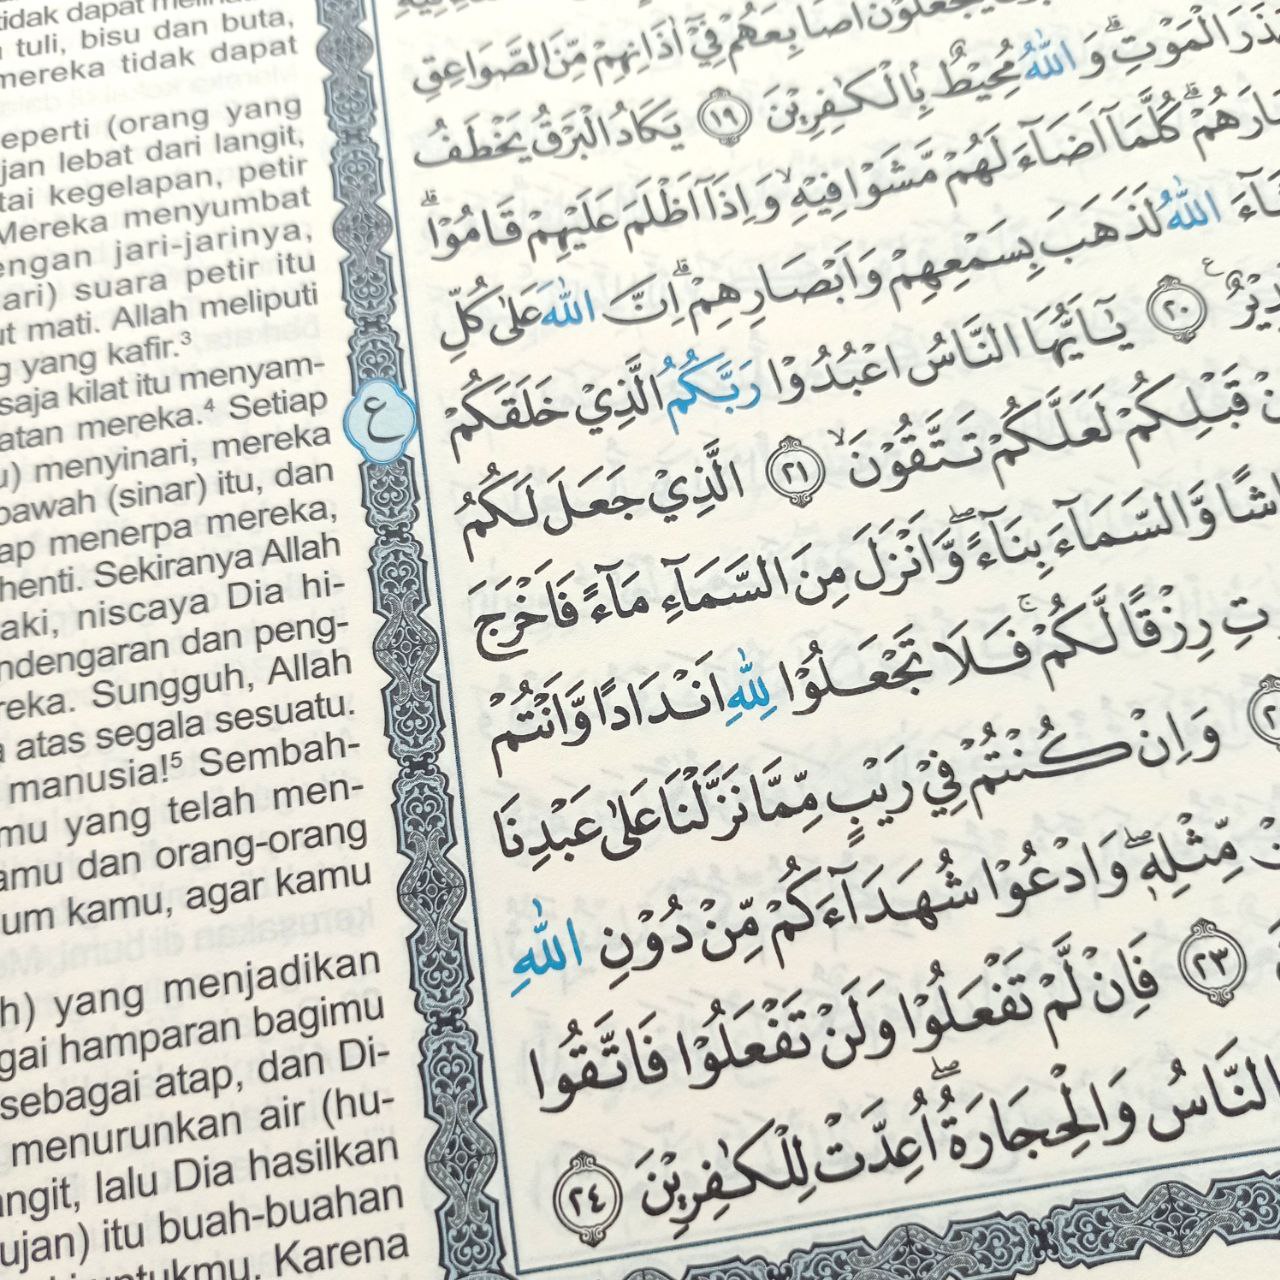 tidak dapat
tuli, bisu dan buta,
mereka tidak dapat
seperti (orang yang
jan lebat dari langit,
tai kegelapan, petir
Mereka menyumbat
engan jari-jarinya,
ari) suara petir itu
ut mati. Allah meliputi
g yang kafir.³
saja kilat itu menyam-
atan mereka.⁴ Setiap
u) menyinari, mereka
bawah (sinar) itu, dan
ap menerpa mereka,
henti. Sekiranya Allah
aki, niscaya Dia hi-
ndengaran dan peng-
reka. Sungguh, Allah
a atas segala sesuatu.
manusia!⁵ Sembah-
mu yang telah men-
amu dan orang-orang
um kamu, agar kamu
h) yang menjadikan
gai hamparan bagimu
sebagai atap, dan Di-
menurunkan air (hu-
angit, lalu Dia hasilkan
ujan) itu buah-buahan
untukmu. Karena
ع
يَجْعَلُوْنَ اَصَابِعَهُمْ فِيْٓ اٰذَانِهِمْ مِّنَ الصَّوَاعِقِ
حَذَرَ الْمَوْتِۗ وَاللّٰهُ مُحِيْطٌۢ بِالْكٰفِرِيْنَ ١٩ يَكَادُ الْبَرْقُ يَخْطَفُ
اَبْصَارَهُمْۗ كُلَّمَآ اَضَاۤءَ لَهُمْ مَّشَوْا فِيْهِۙ وَاِذَآ اَظْلَمَ عَلَيْهِمْ قَامُوْاۗ
شَاۤءَ اللّٰهُ لَذَهَبَ بِسَمْعِهِمْ وَاَبْصَارِهِمْۗ اِنَّ اللّٰهَ عَلٰى كُلِّ
دِيْرٌࣖ ٢٠ يٰٓاَيُّهَا النَّاسُ اعْبُدُوْا رَبَّكُمُ الَّذِيْ خَلَقَكُمْ
نْ قَبْلِكُمْ لَعَلَّكُمْ تَتَّقُوْنَۙ ٢١ الَّذِيْ جَعَلَ لَكُمُ
اشًا وَّالسَّمَاۤءَ بِنَاۤءًۖ وَّاَنْزَلَ مِنَ السَّمَاۤءِ مَاۤءً فَاَخْرَجَ
تِ رِزْقًا لَّكُمْۚ فَلَا تَجْعَلُوْا لِلّٰهِ اَنْدَادًا وَّاَنْتُمْ
٢٢ وَاِنْ كُنْتُمْ فِيْ رَيْبٍ مِّمَّا نَزَّلْنَا عَلٰى عَبْدِنَا
نْ مِّثْلِهٖۖ وَادْعُوْا شُهَدَاۤءَكُمْ مِّنْ دُوْنِ اللّٰهِ
٢٣ فَاِنْ لَّمْ تَفْعَلُوْا وَلَنْ تَفْعَلُوْا فَاتَّقُوا
النَّاسُ وَالْحِجَارَةُۖ اُعِدَّتْ لِلْكٰفِرِيْنَ ٢٤